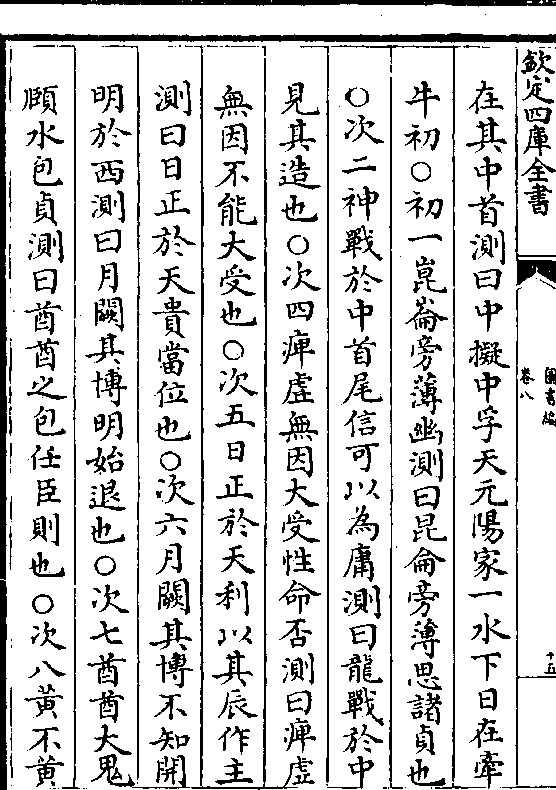 欽定四庫全書
圖書編
卷八
十五
在其中首測曰中擬中孚天元陽家一水下日在牽
牛初○初一崑崙旁薄幽測曰昆侖旁薄思諸貞也
○次二神戰於中首尾信可以為庸測曰龍戰於中
見其造也○次四庳虛無因大受性命否測曰庳虛
無因不能大受也○次五日正於天利以其辰作主
測曰日正於天貴當位也○次六月闕其博不知開
明於西測曰月闕其博明始退也○次七酋酋大鬼
頤水包貞測曰酋酋之包任臣則也○次八黃不黃